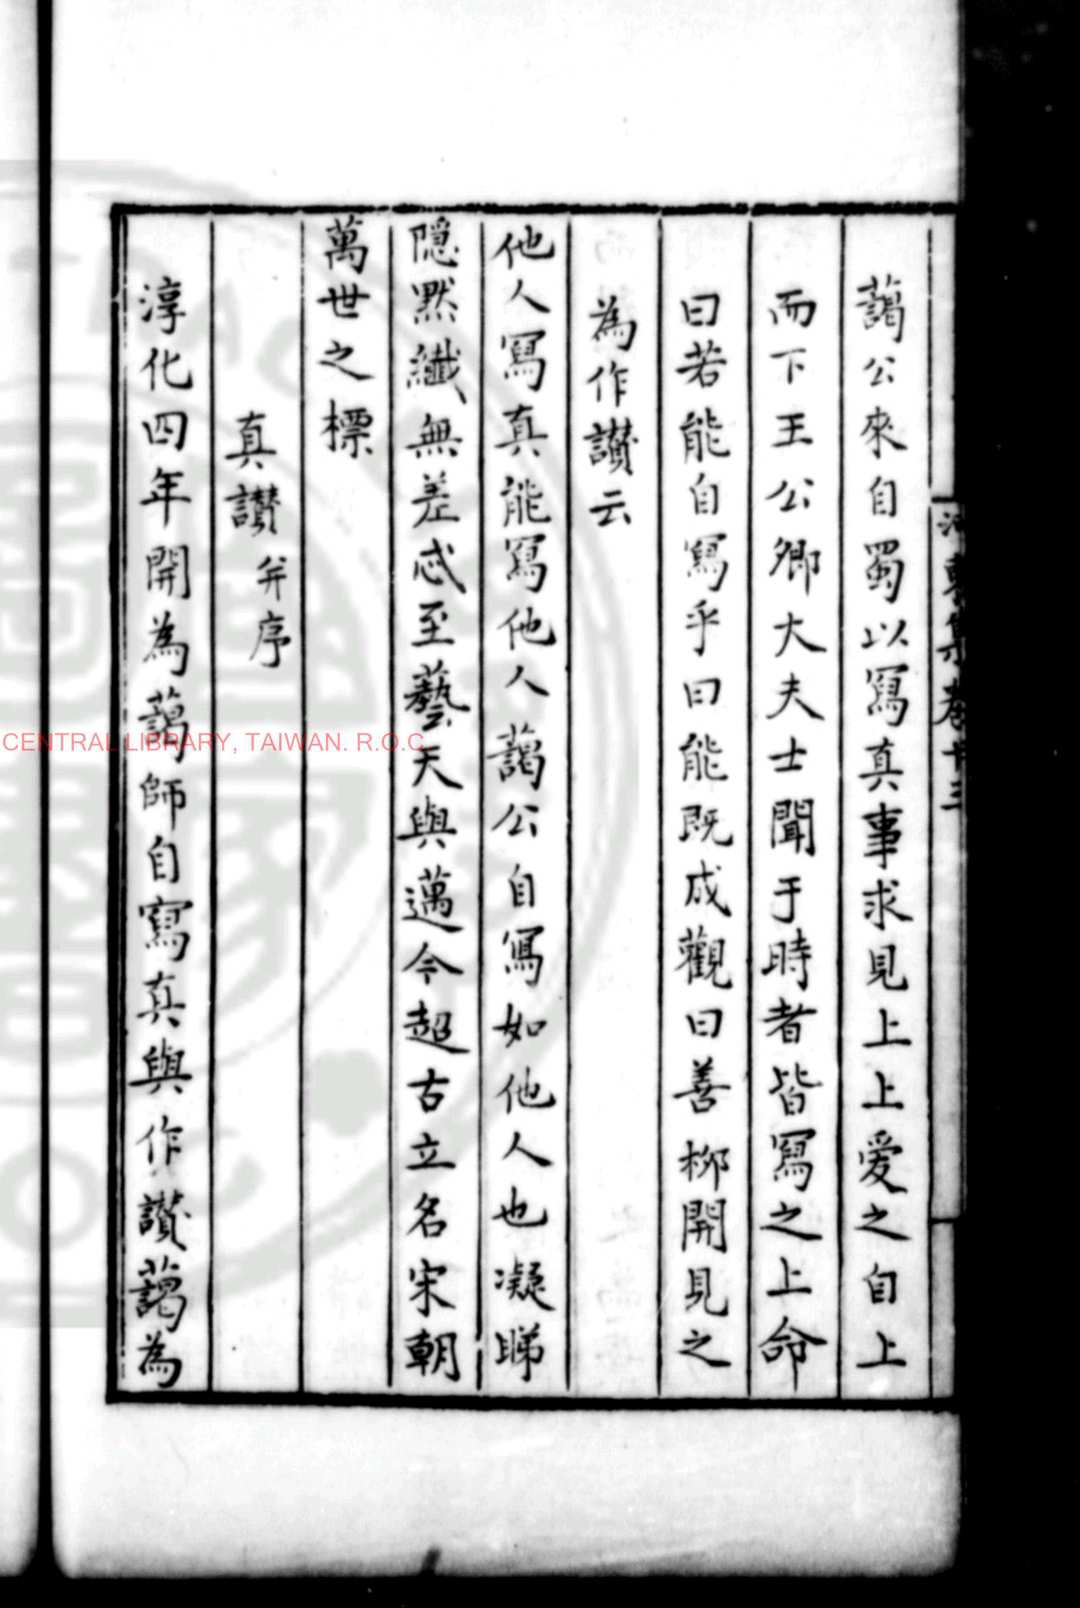 藹公來自蜀以寫真事求見上上爱之自上
而下王公卿大夫士聞于時者皆寫之上命
曰若能自寫乎曰能既成觀曰善柳開見之
為作讃云
他人寫真能寫他人藹公自寫如他人也凝睇
隠黙纎無差忒至藝天與邁今超古立名宋朝
萬世之標
真讃并序
淳化四年開為藹師自寫真與作讃藹為
CENTRAL LIBRARY, TAIWAN. R.O.C.